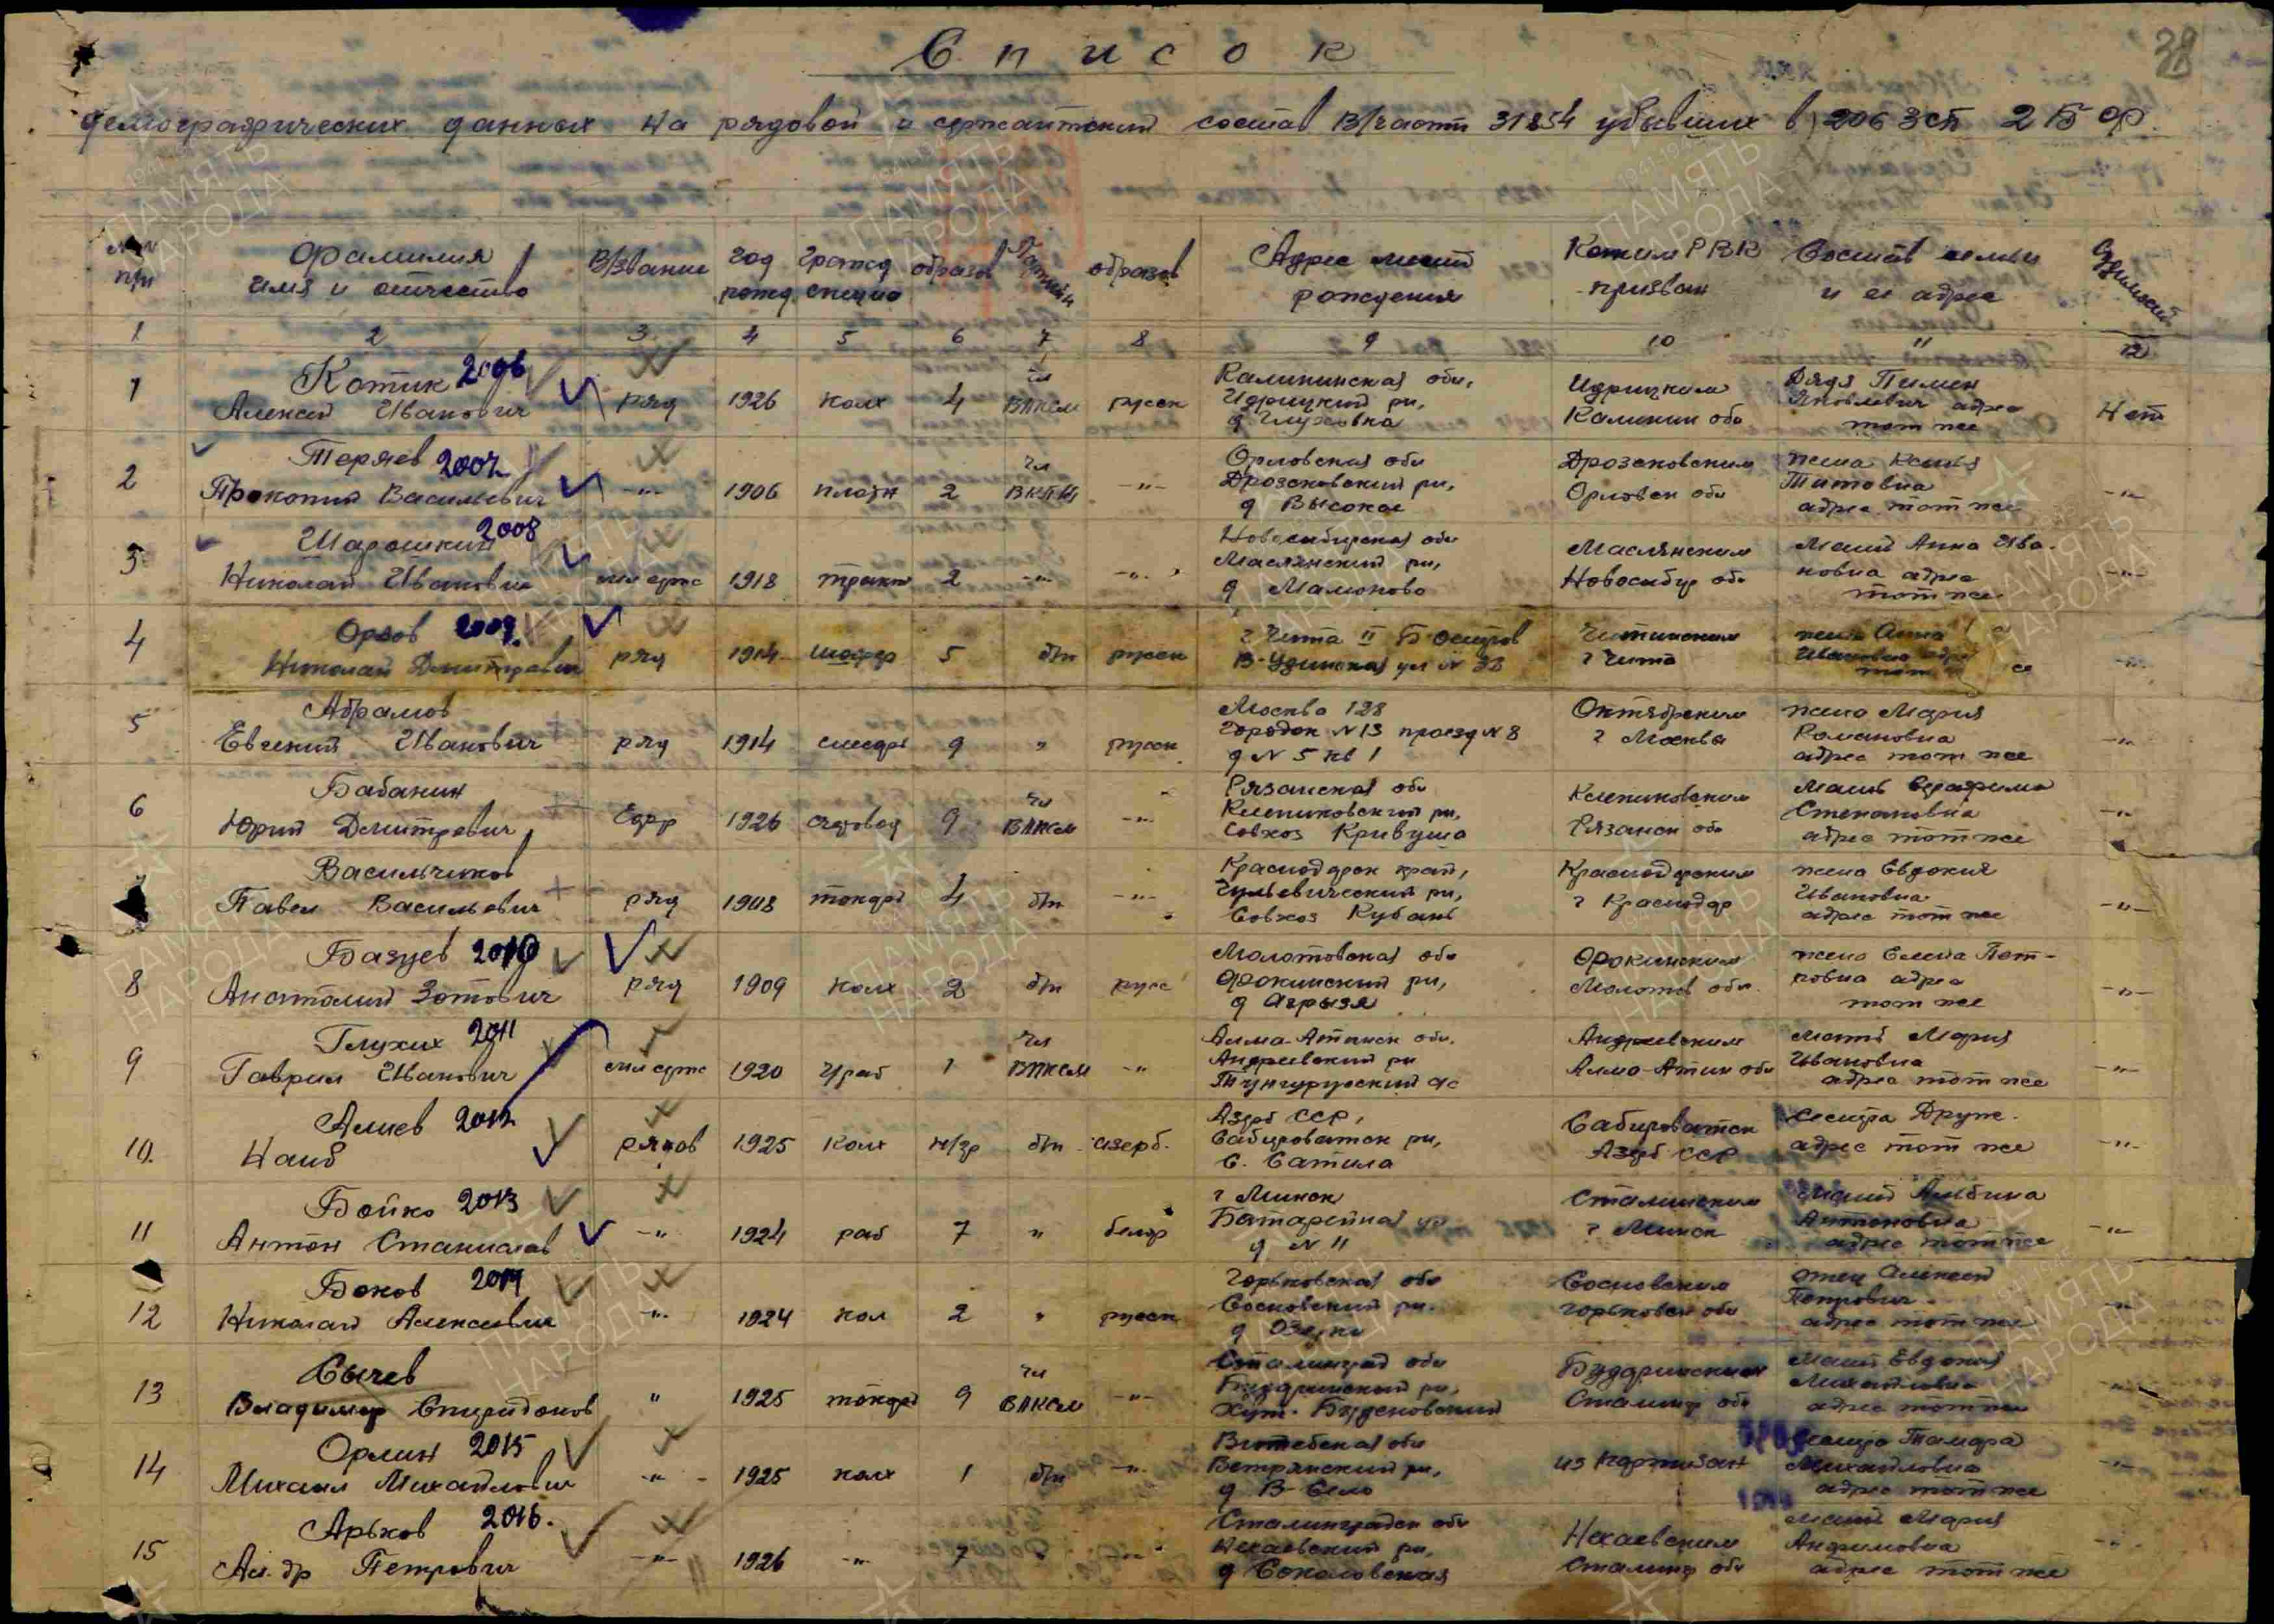 Список
демографических данных на рядовой и сержантский состав В/части 31854 убывших в 206 ЗСП 2 БФ
38
№№ п/п
Фамилия имя и отчество
В/звание
Год рожд
Гражд специа
образов
Партийн
образов
Адрес мест рождения
Каким РВК призван
Состав семьи и ее адрес
1 2 3 4 5 6 7 8 9 10 11 12
1 Котик 2006
Алексей Иванович ряд 1926 колх 4 чл ВЛКСМ русск
Калининская обл,
Идрицкий рн,
д Глуховка
Идрицким
Калинин обл
Дядя Пимен
Яковлевич адрес
тот же
Нет
2 Теряев 2007
Прокопий Васильевич -"- 1906 плотн 2 чл ВКПб -"-
Орловская обл
Дросковский рн,
д Высокое
Дросковским
Орловск обл
жена Ксенья
Титовна
адрес тот же
-"-
3 Шарошкин 2008
Николай Иванович мл серж 1918 тракт 2 -"- -"-
Новосибирская обл
Маслянский рн,
д Мамоново
Маслянским
Новосибир обл
Мать Анна Ива-
новна адрес
тот же
-"-
4 Орлов 2009
Николай Дмитревич ряд 1914 шофер 5 б/п русск
г Чита II Б Остров
В-Удинская ул №
Читинским
г Чита
жена Анна
Ивановна адре
тот же
-"-
5 Абрамов
Евгений Иванович ряд 1914 слесарь 9 " русск
Москва 128
Городок №13 проезд №8
д №5 кв 1
Октябрьским
г Москвы
жена Мария
Романовна
адрес тот же
-"-
6 Бабанин
Юрий Дмитревич Ефр 1926 счетовод 9 чл ВЛКСМ -"-
Рязанская обл
Клепиковский рн,
Совхоз Кривуша
Клепиковским
Рязанск обл
Мать Серафима
Степановна
адрес тот же
-"-
Васильчиков
Павел Васильевич ряд 1908 токарь 4 б/п -"-
Краснодарск край,
Гулькевический рн,
Совхоз Кубань
Краснодарским
г Краснодар
жена Евдокия
Ивановна
адрес тот же
-"-
8 Базуев 2010
Анатолий Зотович ряд 1909 колх 2 б/п русс
Молотовская обл
Фокинский рн,
д Агрызя
Фокинским
Молотов обл.
жена Елена Пет-
ровна адрес
тот же
-"-
9 Глухих 2011
Гаврил Иванович мл серж 1920 ч/раб 1 чл ВЛКСМ -"-
Алма-Атинск обл.
Андреевский рн
Андреевским
Алма-Атин обл
Мать Мария
Ивановна
адрес тот же
-"-
10. Алиев 2012
Наиб рядов 1925 Колх н/гр б/п азерб.
Азерб ССР,
Сабироватск рн,
С. Сатила
Сабироватск
Азерб ССР
Сестра Друж.
адрес тот же
-"-
11 Бойко 2013
Антон Станислав -"- 1924 раб 7 " белор
г Минск
Батарейная ул
д №11
Сталинским
г Минск
Мать Альбина
Антоновна
адрес тот же
-"-
12 Боков 2014
Николай Алексеевич -"- 1924 кол 2 " русск
Горьковская обл
Сосновский рн.
д Озерки
Сосновским
Горьковск обл
Отец Алексей
Петрович
адрес тот же
-"-
13 Сычев
Владимир Спиридонов " 1925 токарь 9 чл ВЛКСМ -"-
Сталинград обл
Бударинский рн,
Хут. Буденовский
Бударинским
Сталингр обл
Мать Евдокия
Михайловна
адрес тот же
-"-
14 Орлин 2015
Михаил Михайлович -"- 1925 колх 1 б/п -"-
Витебская обл
Ветринский рн,
д В-Село
из партизан
Сестра Тамара
Михайловна
адрес тот же
-"-
15 Арьков 2016.
Ал-др Петрович -"- 1926 -"- 7 " -"-
Сталинградск обл
Нехаевский рн,
д Соколовская
Нехаевским
Сталингр обл
Мать Мария
Анфимовна
адрес тот же
-"-
ПАМЯТЬ НАРОДА